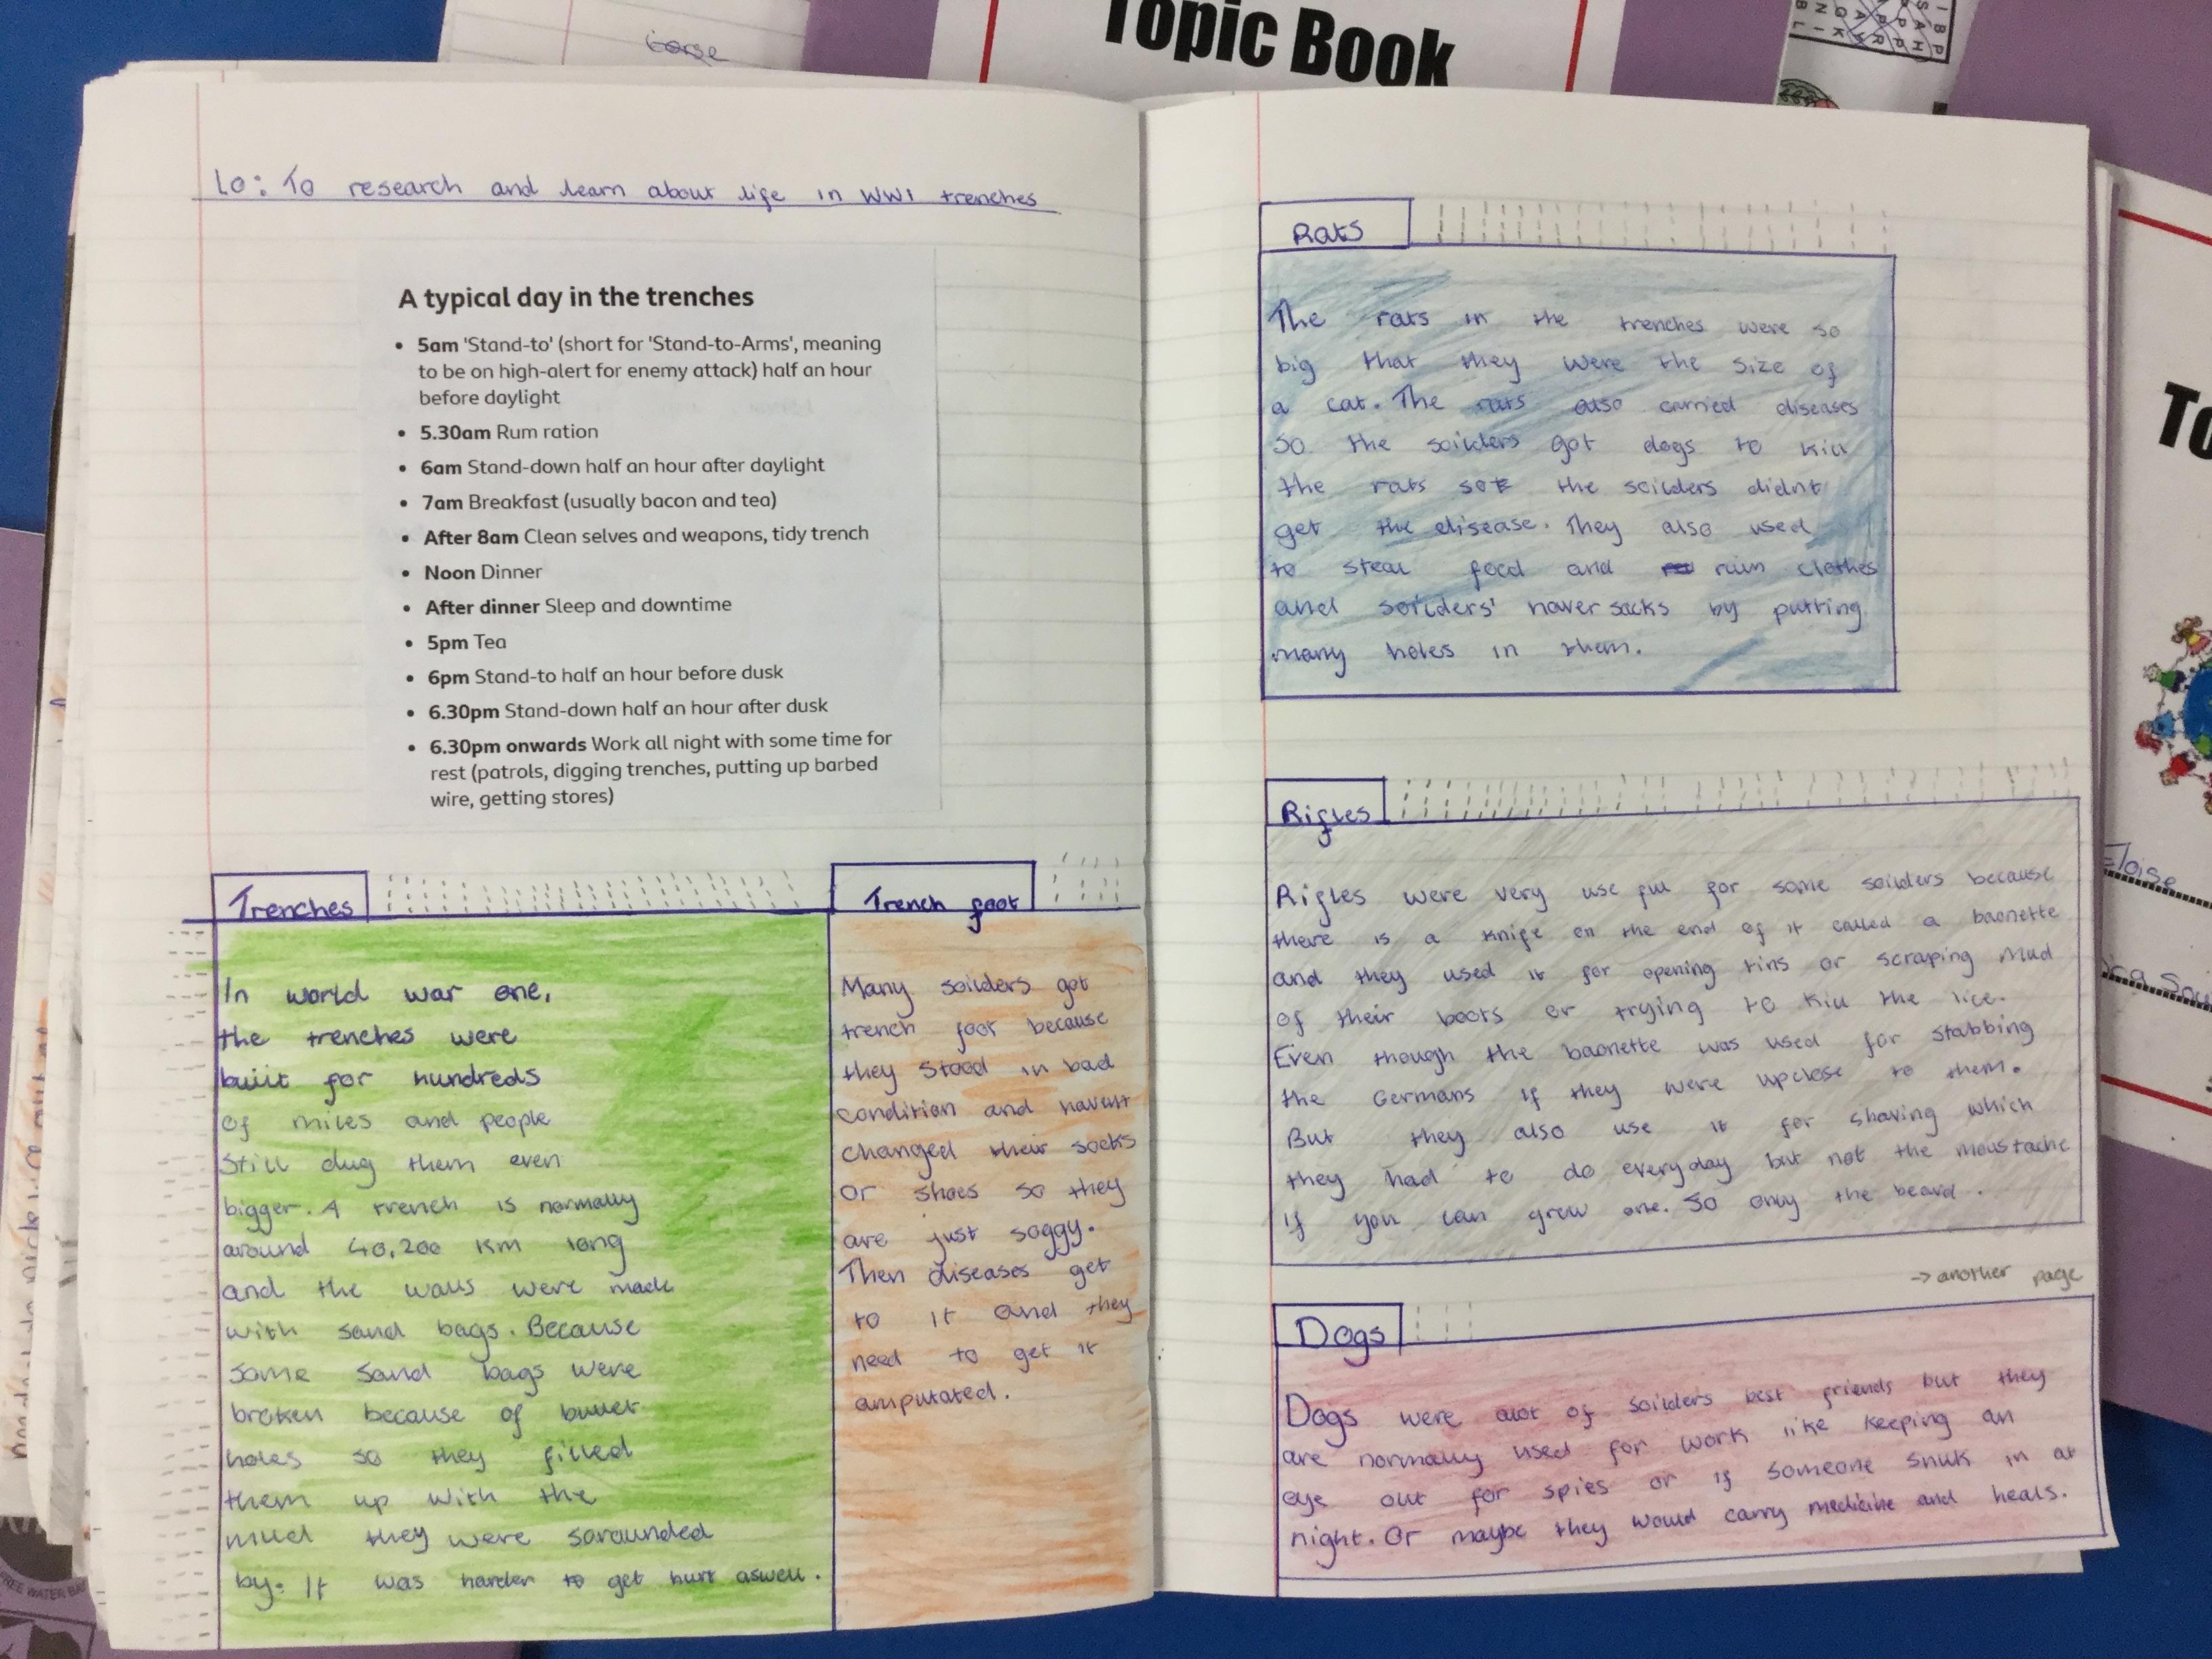 Topic Book
Lo: To research and learn about life in WW1 trenches
A typical day in the trenches
• 5am 'Stand-to' (short for 'Stand-to-Arms', meaning
to be on high-alert for enemy attack) half an hour
before daylight
• 5.30am Rum ration
• 6am Stand-down half an hour after daylight
• 7am Breakfast (usually bacon and tea)
• After 8am Clean selves and weapons, tidy trench
• Noon Dinner
• After dinner Sleep and downtime
• 5pm Tea
• 6pm Stand-to half an hour before dusk
• 6.30pm Stand-down half an hour after dusk
• 6.30pm onwards Work all night with some time for
rest (patrols, digging trenches, putting up barbed
wire, getting stores)
Trenches
In world war one,
the trenches were
built for hundreds
of miles and people
still dug them even
bigger. A trench is normally
around 40,200 km long
and the walls were made
with sand bags. Because
some sand bags were
broken because of bullet
holes so they filled
them up with the
mud they were sarounded
by. It was harder to get hurt aswell.
Trench foot
Many soilders got
trench foot because
they stood in bad
condition and havent
changed their socks
or shoes so they
are just soggy.
Then diseases get
to it and they
need to get it
amputated.
Rats
The rats in the trenches were so
big that they were the size of
a cat. The rats also carried diseases
so the soilders got dogs to kill
the rats so the soilders didnt
get the disease. They also used
to steal food and ruin clothes
and soilders' haver sacks by putting
many holes in them.
Rifles
Rifles were very use ful for some soilders because
there is a knife on the end of it called a baonette
and they used it for opening tins or scraping mud
of their boots or trying to kill the lice.
Even though the baonette was used for stabbing
the Germans if they were upclose to them.
But they also use it for shaving which
they had to do everyday but not the moustache
if you can grow one. So only the beard.
→ another page
Dogs
Dogs were alot of soilders best friends but they
are normally used for work like keeping an
eye out for spies or if someone snuk in at
night. Or maybe they would carry medicine and heals.
To
Eloise